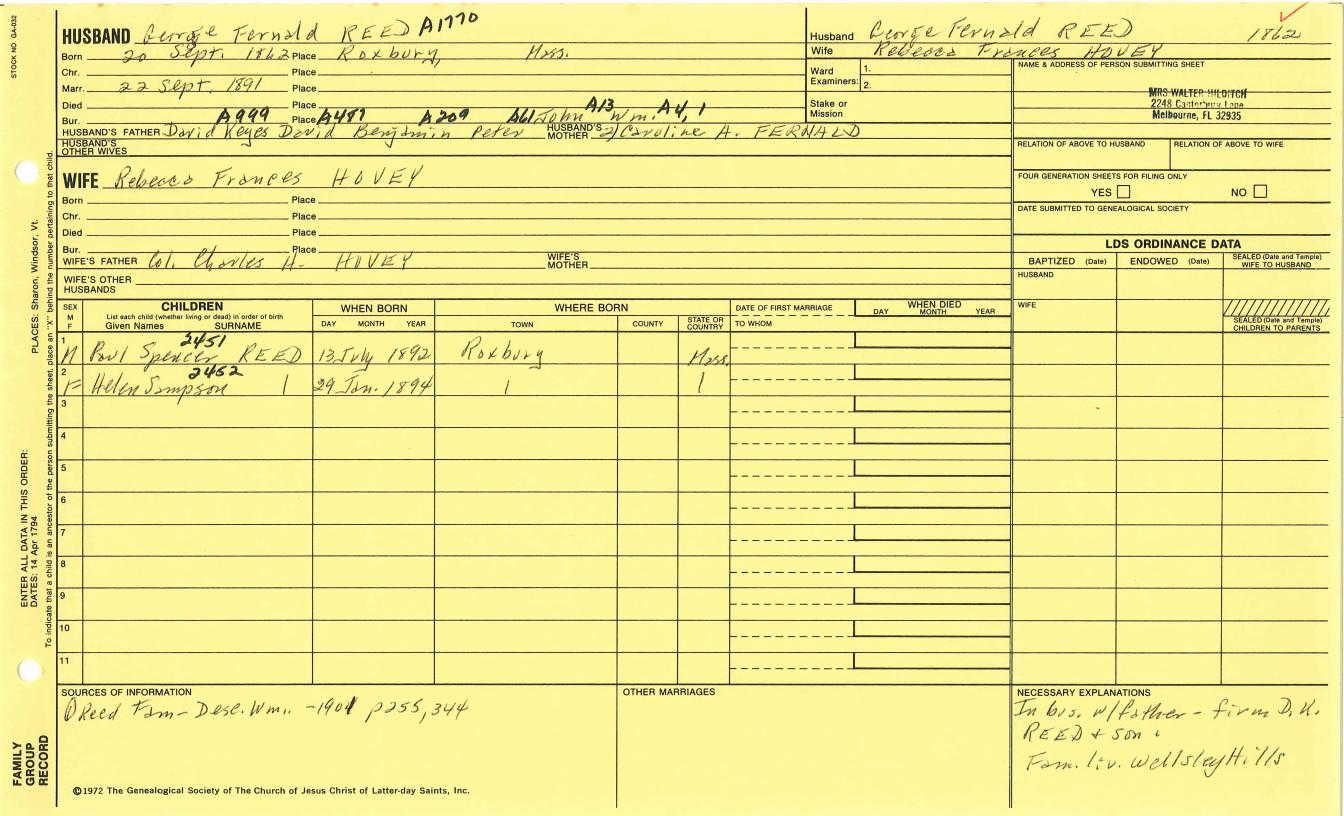 STOCK NO. GA-032
HUSBAND George Fernald REED A1770
Born 20 Sept. 1862 Place Roxbury, Mass.
Chr. Place
Marr. 22 Sept. 1891 Place
Died Place
Bur. Place
A999 A487 A209 A61 A13 A4, 1
HUSBAND'S FATHER David Keyes David Benjamin Peter John Wm. HUSBAND'S MOTHER 2) Caroline A. FERNALD
HUSBAND'S OTHER WIVES
WIFE Rebecca Frances HOVEY
Born Place
Chr. Place
Died Place
Bur. Place
WIFE'S FATHER Col. Charles H. HOVEY WIFE'S MOTHER
WIFE'S OTHER HUSBANDS
Husband George Fernald REED 1862
Wife Rebecca Frances HOVEY
Ward Examiners: 1. 2.
Stake or Mission
NAME & ADDRESS OF PERSON SUBMITTING SHEET
MRS WALTER HILDITCH
2248 Canterbury Lane
Melbourne, FL 32935
RELATION OF ABOVE TO HUSBAND RELATION OF ABOVE TO WIFE
FOUR GENERATION SHEETS FOR FILING ONLY
YES NO
DATE SUBMITTED TO GENEALOGICAL SOCIETY
LDS ORDINANCE DATA
BAPTIZED (Date) ENDOWED (Date) SEALED (Date and Temple) WIFE TO HUSBAND
HUSBAND
WIFE
SEALED (Date and Temple) CHILDREN TO PARENTS
SEX M F
CHILDREN
List each child (whether living or dead) in order of birth
Given Names SURNAME
WHEN BORN
DAY MONTH YEAR
WHERE BORN
TOWN COUNTY STATE OR COUNTRY
DATE OF FIRST MARRIAGE
TO WHOM
WHEN DIED
DAY MONTH YEAR
2451
1 M Paul Spencer REED 13 July 1892 Roxbury Mass.
2452
2 F Helen Sampson | 29 Jan. 1894 | |
3
4
5
6
7
8
9
10
11
SOURCES OF INFORMATION
Reed Fam- Desc. Wm. -1901 p255, 344
©1972 The Genealogical Society of The Church of Jesus Christ of Latter-day Saints, Inc.
OTHER MARRIAGES
NECESSARY EXPLANATIONS
In bus. w/father - firm D.K.
REED + son
Fam. liv. Wellsley Hills
ENTER ALL DATA IN THIS ORDER:
DATES: 14 Apr 1794 PLACES: Sharon, Windsor, Vt.
To indicate that a child is an ancestor of the person submitting the sheet, place an "X" behind the number pertaining to that child.
FAMILY
GROUP
RECORD